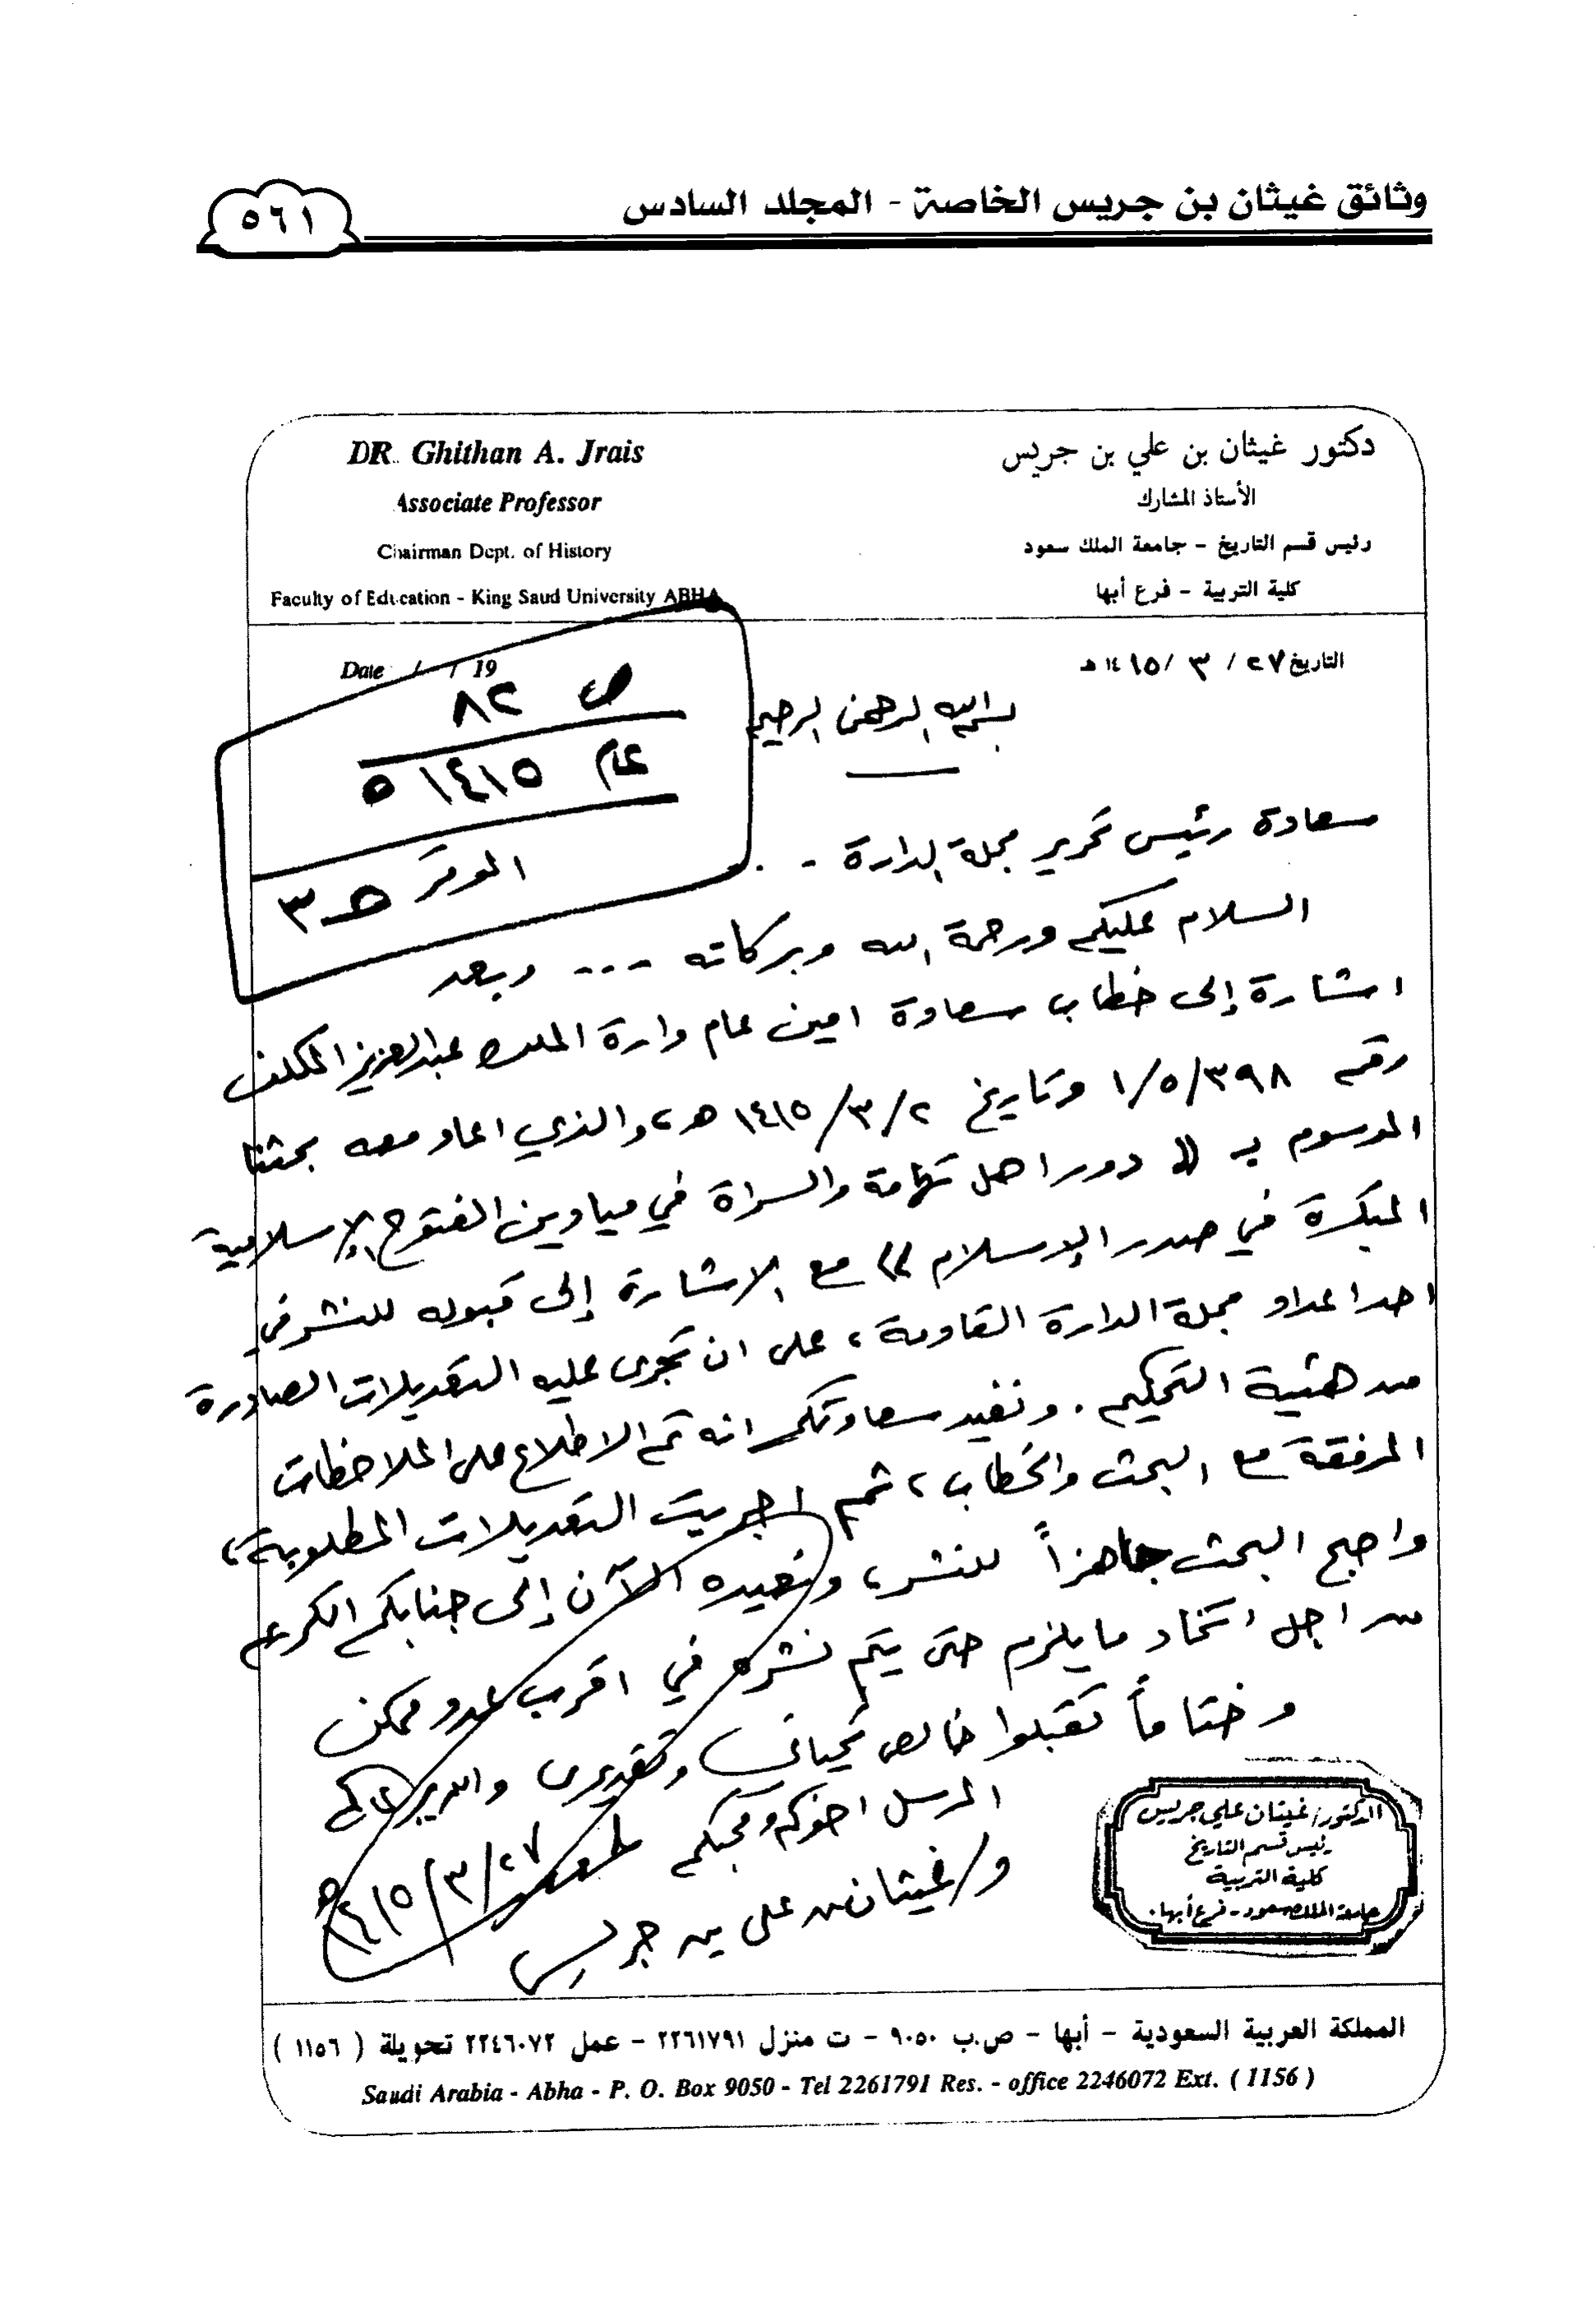 وثائق غيثان بن جريس الخاصة - المجلد السادس
٥٦١
دكتور غيثان بن علي بن جريس
الأستاذ المشارك
رئيس قسم التاريخ - جامعة الملك سعود
كلية التربية - فرع أبها
DR. Ghithan A. Jrais
Associate Professor
Chairman Dept. of History
Faculty of Education - King Saud University ABHA
التاريخ ٢٧ / ٣ / ١٤١٥ هـ
Date / / 19
ص ٨٢
عام ١٤١٥ هـ
هـ ٣
بسم الله الرحمن الرحيم
سعادة رئيس تحرير مجلة الدارة - ..
السلام عليكم ورحمة الله وبركاته - ... وبعد
اشارة إلى خطاب سعادة امين عام دارة الملك عبدالعزيز المكلف
رقم ١/٥/٣٩٨ وتاريخ ١٤١٥/٣/٢ هـ، والذي اعاد معه بحثنا
الموسوم بـ (( دور اهل تهامة والسراة في ميادين الفتوح الإسلامية
المبكرة في صدر الإسلام )) مع الاشارة إلى قبوله للنشر في
احد اعداد مجلة الدارة القادمة، على ان تجرى عليه التعديلات الصادرة
من هيئة التحكيم. ونفيد سعادتكم انه تم الاطلاع على الملاحظات
المرفقة مع البحث والخطاب، ثم اجريت التعديلات المطلوبة،
واصبح البحث جاهزاً للنشر، ونعيده الآن إلى جنابكم الكريم
من اجل اتخاذ ما يلزم حتى يتم نشره في اقرب عدد ممكن
وختاماً تقبلوا خالص تحياتي وتقديرى والله يرعاكم
المرسل اخوكم ومحبكم
د/ غيثان بن علي بن جريس
١٤١٥/٣/٢٧ هـ
الدكتور/ غيثان علي جريس
رئيس قسم التاريخ
كلية التربية
جامعة الملك سعود - فرع أبها.
المملكة العربية السعودية - أبها - ص.ب ٩٠٥٠ - ت منزل ٢٢٦١٧٩١ - عمل ٢٢٤٦٠٧٢ تحويلة ( ١١٥٦ )
Saudi Arabia - Abha - P. O. Box 9050 - Tel 2261791 Res. - office 2246072 Ext. ( 1156 )